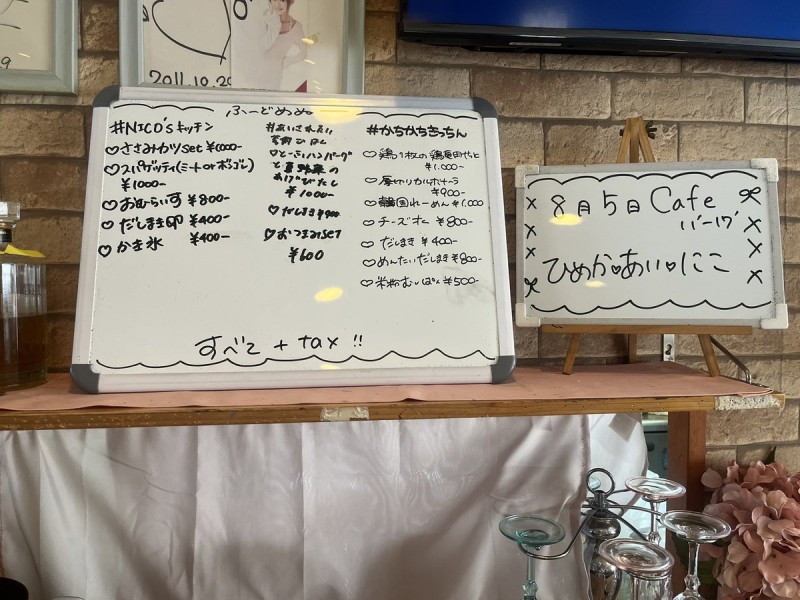 2011.10.29
ふーどめぬ
#NICO'sキッチン
♡ささみカツset ¥1000-
♡スパゲッティ(ミートorボンゴレ)
¥1000-
♡おむらいす ¥800-
♡だしまき卵 ¥400-
♡かき氷 ¥400-
#あいされたい
♡とーふハンバーグ
と夏野菜の
あげびたし
¥1000-
♡だしまき
♡おつまみset
¥600
#かちかちきっちん
♡鶏1枚の
¥1.000-
♡厚切りカルボナーラ
¥900-
♡韓国れーめん ¥1.000
♡チーズオムー ¥800-
♡だしまき ¥400-
♡めんたいだしまき ¥800-
♡米粉むしぱん ¥500-
すべて + tax !!
8月5日 Cafe
ひめか♥あい♥にこ